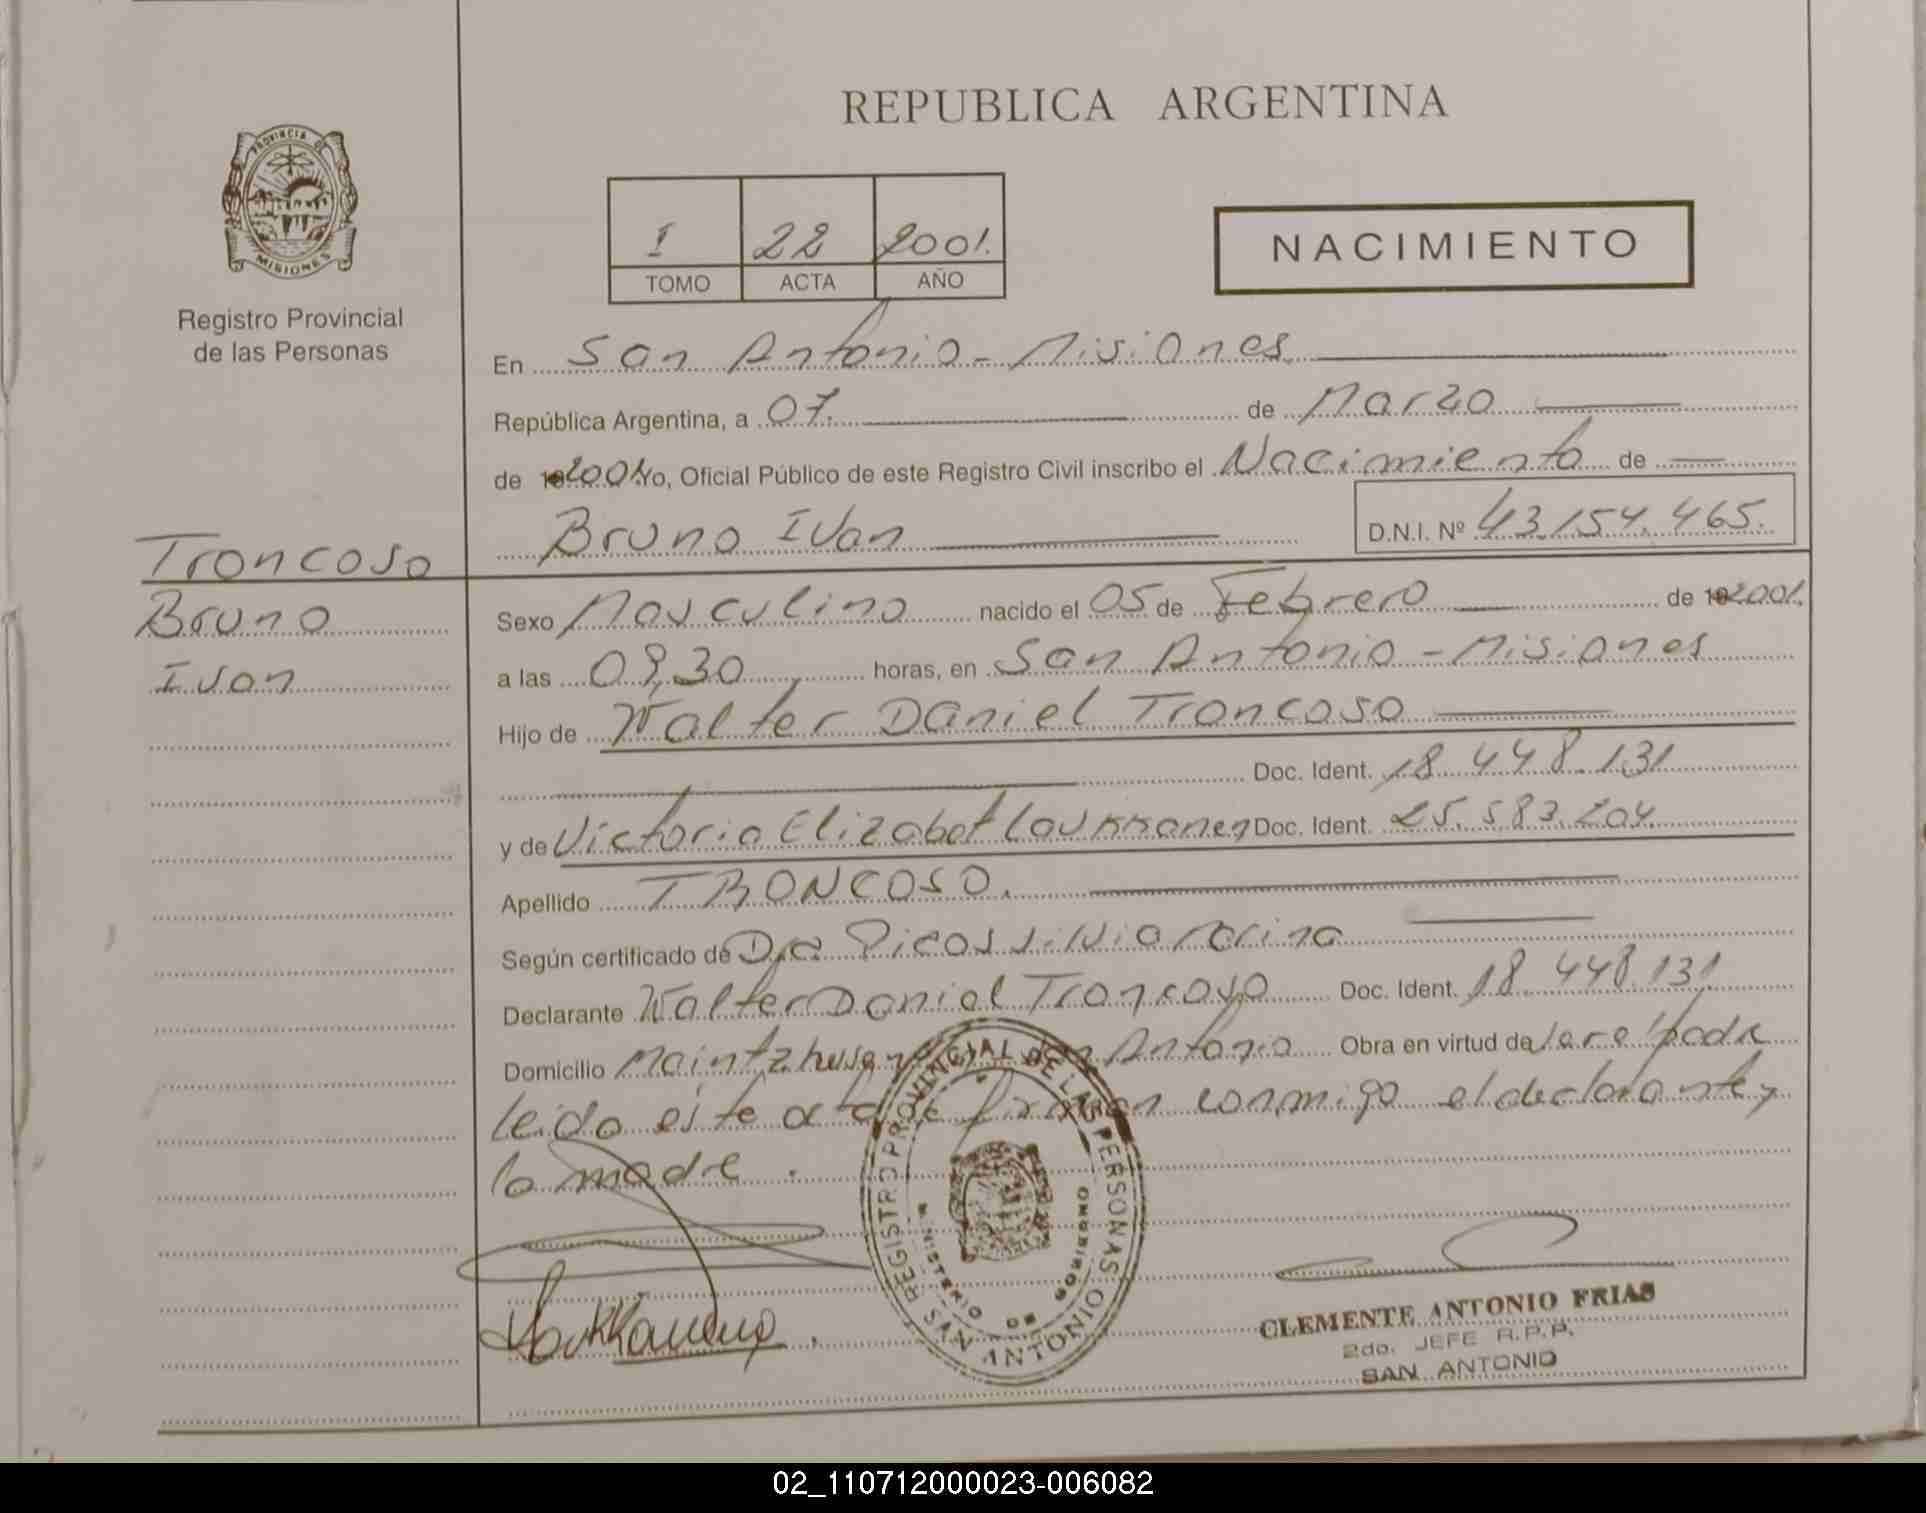 REPUBLICA ARGENTINA
PROVINCIA DE
MISIONES
Registro Provincial
de las Personas
I 22 2001.
TOMO ACTA AÑO
NACIMIENTO
En San Antonio - Misiones
República Argentina, a 07. de Marzo
de 2001 Yo, Oficial Público de este Registro Civil inscribo el Nacimiento de
Bruno Ivan D.N.I. Nº 43.154.465.
Troncoso
Bruno
Ivan
Sexo Masculino nacido el 05 de Febrero de 2001.
a las 09,30 horas, en San Antonio - Misiones
Hijo de Walter Daniel Troncoso
Doc. Ident. 18.448.131
y de Victoria Elizabet Laukkanen Doc. Ident. 25.583.204
Apellido TRONCOSO.
Según certificado de Dra
Declarante Walter Daniel Troncoso Doc. Ident. 18.448.131
Domicilio San Antonio Obra en virtud de ser el padre
leida este acta la firman conmigo el declarante y
la madre.
REGISTRO PROVINCIAL DE LAS PERSONAS
MINISTERIO DE GOBIERNO
SAN ANTONIO
Laukkanen
CLEMENTE ANTONIO FRIAS
2do. JEFE R.P.P.
SAN ANTONIO
02_110712000023-006082